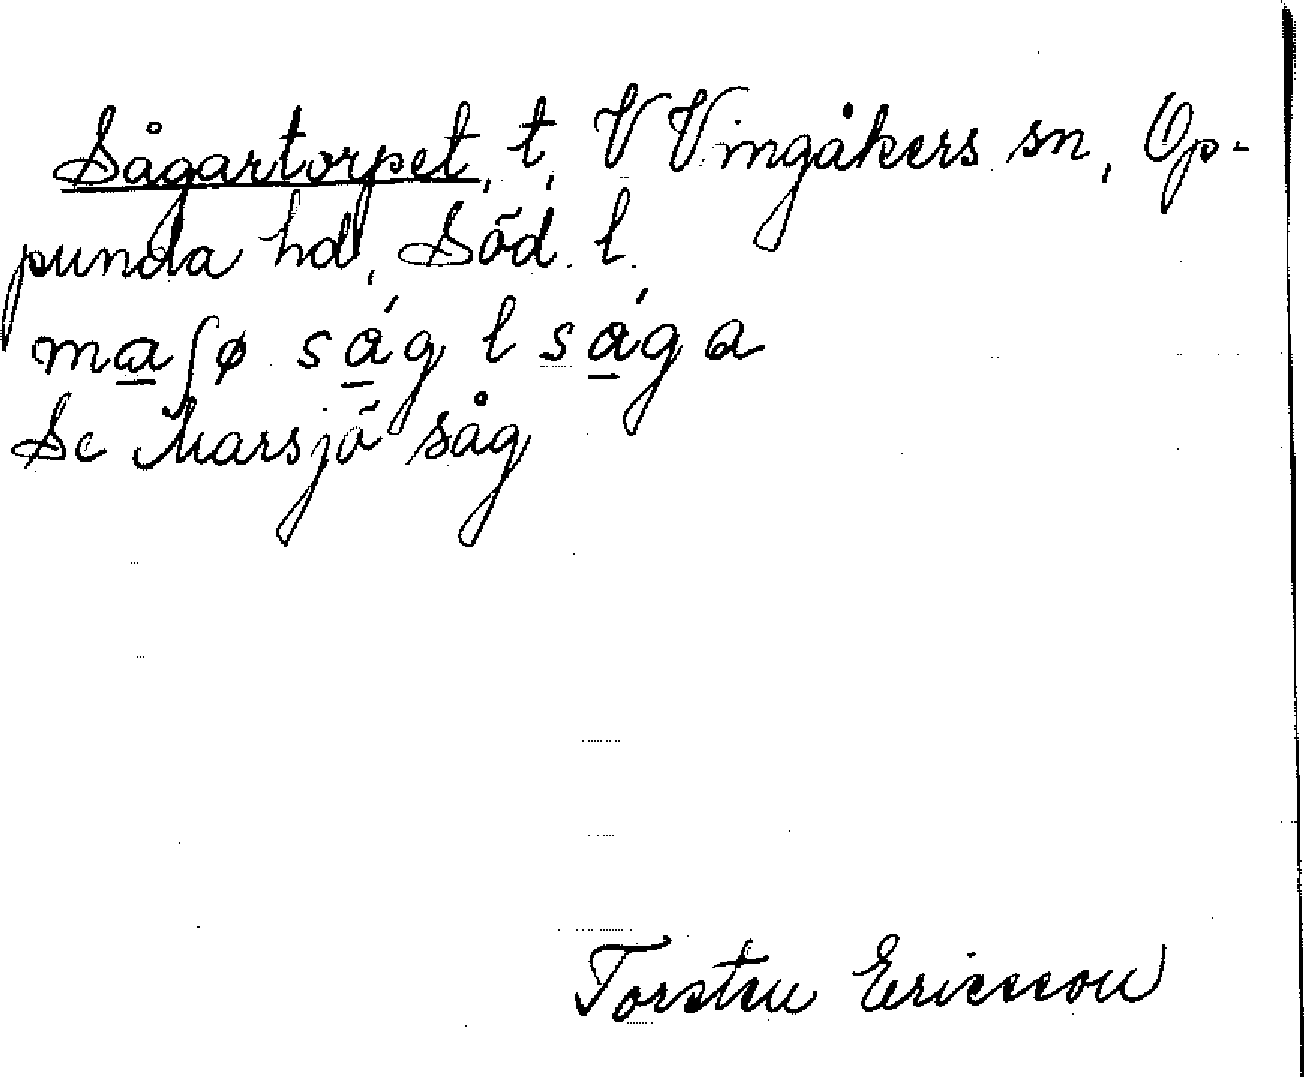 Sågartorpet, t, V Vingåkers sn, Op-
punda hd, Söd. l.
maʃø ság l sága
Se Marsjö såg
Torsten Ericsson